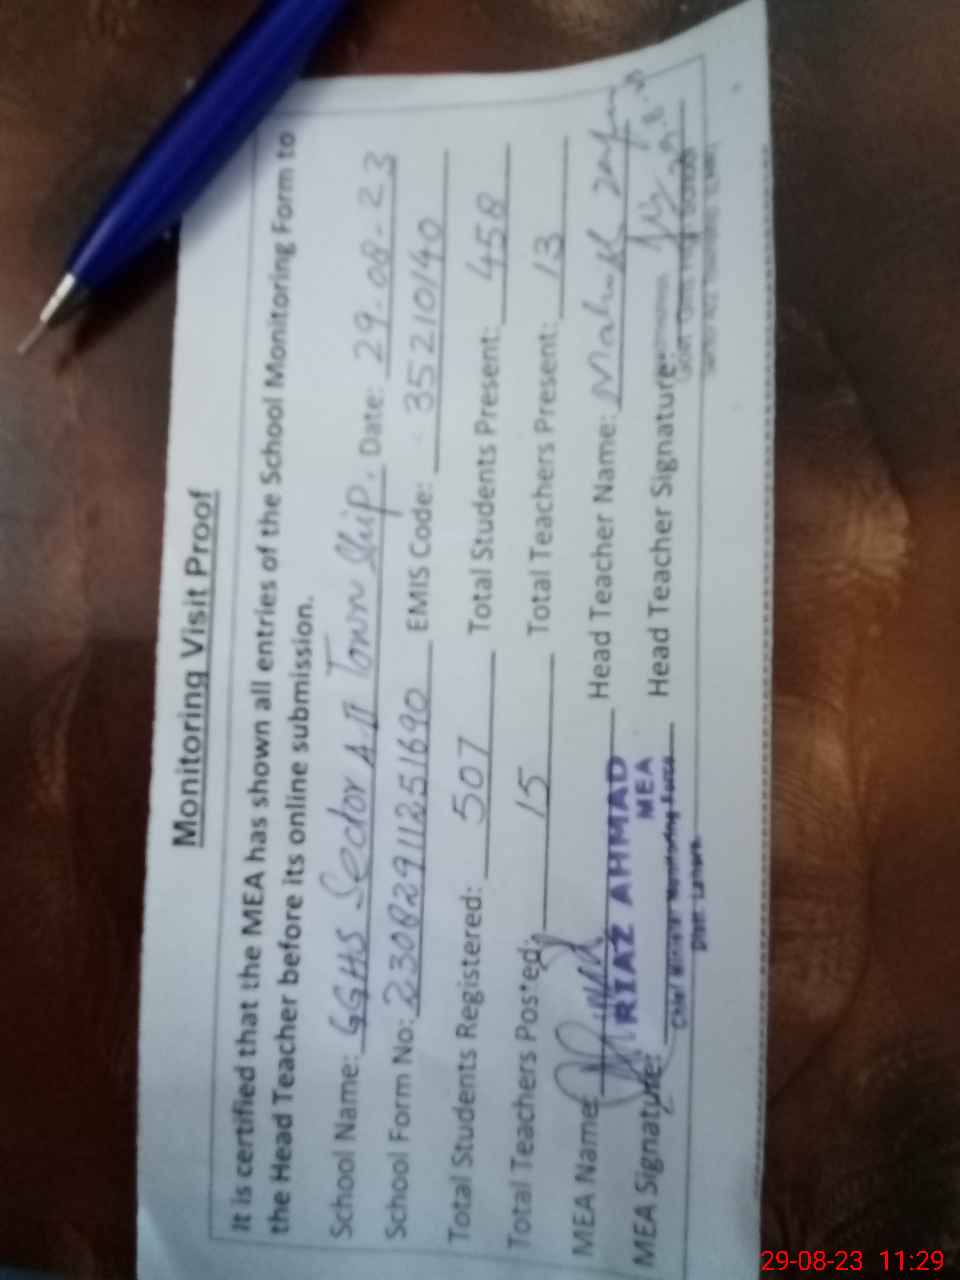 Monitoring Visit Proof
It is certified that the MEA has shown all entries of the School Monitoring Form to
the Head Teacher before its online submission.
School Name: GGHS Sector A II Town Ship. Date: 29-08-23
School Form No: 23082911251690 EMIS Code: 35210140
Total Students Registered: 507 Total Students Present: 458
Total Teachers Posted: 15 Total Teachers Present: 13
MEA Name: Head Teacher Name:
RIAZ AHMAD
MEA
MEA Signature: Head Teacher Signature:
Chief Minister Monitoring Force
Distt. Lahore
29-08-23 11:29